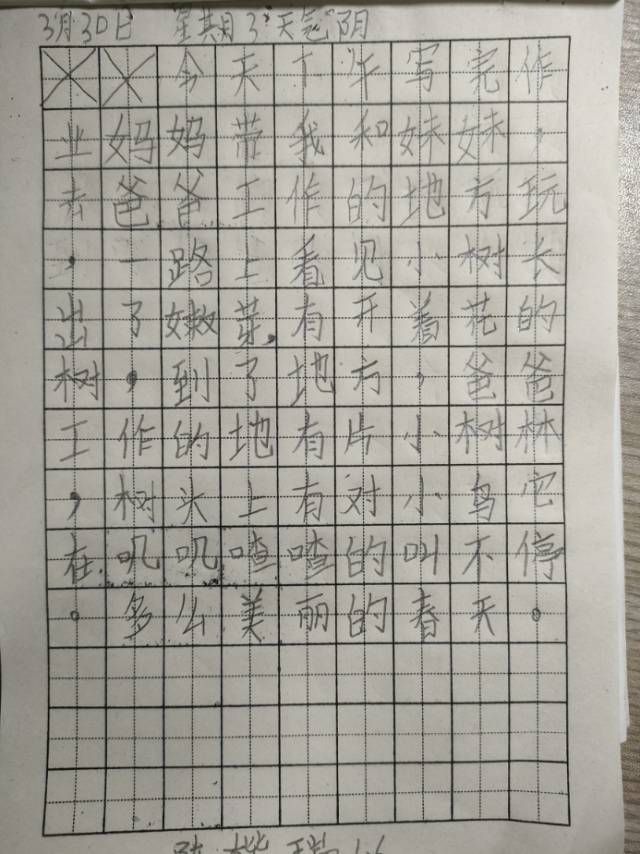 3月30日 星期3 天气阴
今天下午写完作
业妈妈带我和妹妹，
去爸爸工作的地方玩
，一路上看见小树长
出了嫩芽，有开着花的
树，到了地方，爸爸
工作的地有片小树林
，树头上有对小鸟它
在叽叽喳喳的叫不停
。多么美丽的春天。